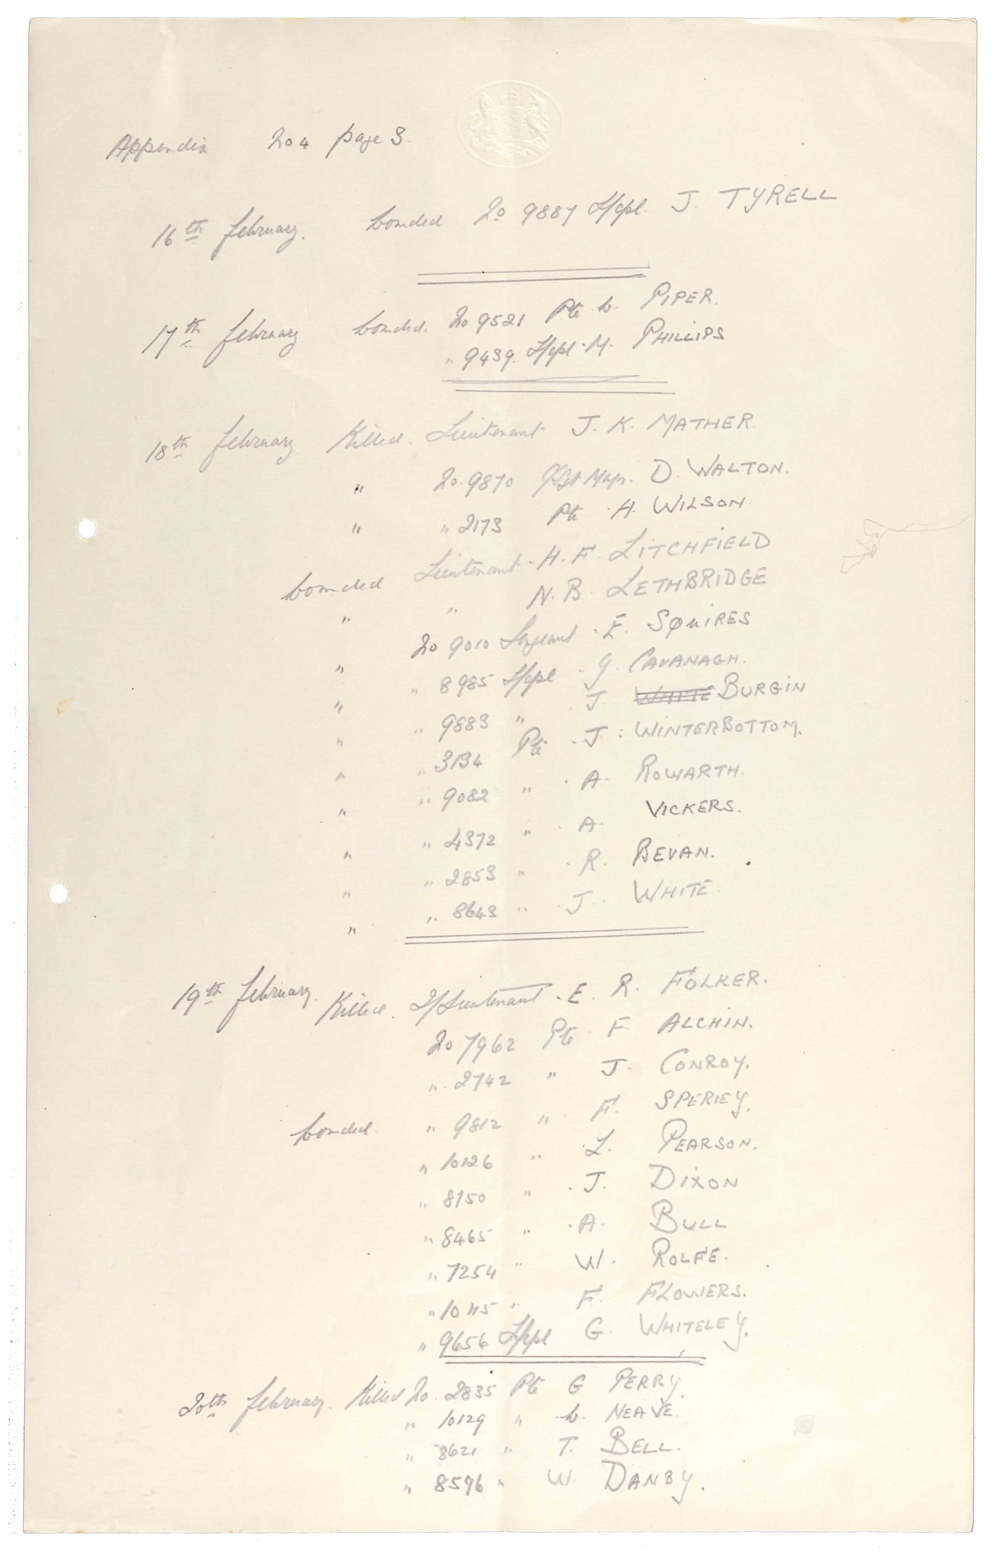 Appendix No 4 page 3.
16th February. wounded No 9887 L/cpl. J. TYRELL
17th February wounded. No 9521 Pte C. PIPER.
" 9439. L/cpl. M. PHILLIPS
18th February Killed. Lieutenant J. K. MATHER.
" No. 9870 D. WALTON.
" " 2173 Pte H. WILSON.
wounded Lieutenant. H. F. LITCHFIELD
" " N. B. LETHBRIDGE
" No 9010 Sergeant. E. SQUIRES
" " 8985 L/cpl G. CAVANAGH.
" " 9883 " J. WHITE BURGIN
" " 3134 Pte. J. WINTERBOTTOM.
" " 9082 " A. ROWARTH.
" " 4372 " A. VICKERS.
" " 2853 " R. BEVAN.
" " 8643 " J. WHITE.
19th February. Killed. 2/Lieutenant. E. R. FOLKER.
No 7962 Pte. F. ALCHIN.
" 2742 " J. CONROY.
wounded. " 9812 " F. SPERIEY.
" 10126 " L. PEARSON.
" 8150 " J. DIXON
" 8465 " A. BULL
" 7254 " W. ROLFE.
" 10115 " F. FLOWERS.
" 9656 L/cpl G. WHITELEY.
20th February. Killed No. 2835 Pte G PERRY.
" 10129 " C. NEAVE.
" 8621 " T. BELL.
" 8596 " W. DANBY.